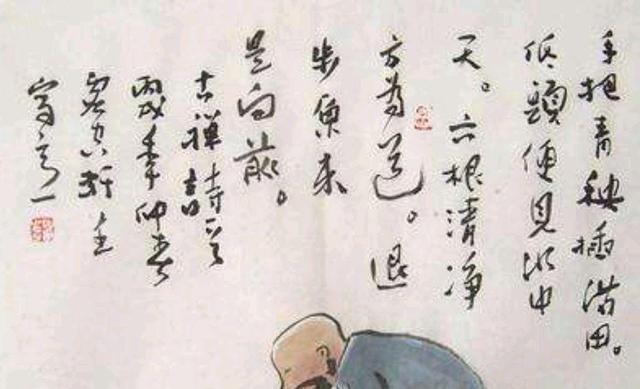 手把青秧插满田。
低头便见水中
天。六根清净
方为道。退
步原来
是向前。
古禅诗一首
丙戌年仲春